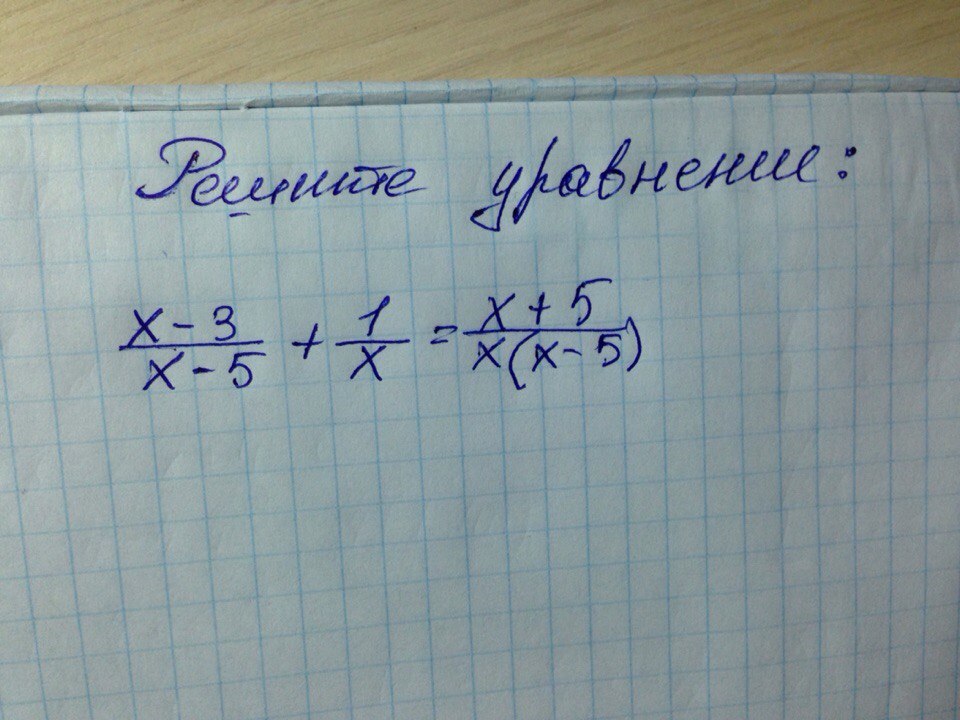 Решите уравнение:
x-3/x-5 + 1/x = x+5/x(x-5)